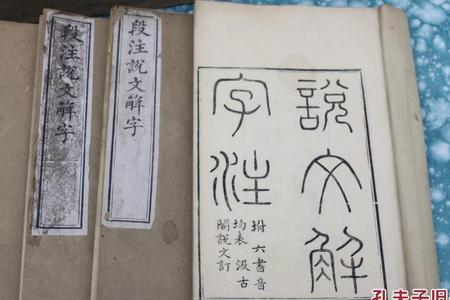 說文解
字注
坿六書音
均表汲古
閣說文訂
段注說文觧字
段注說文觧字
孔夫子旧